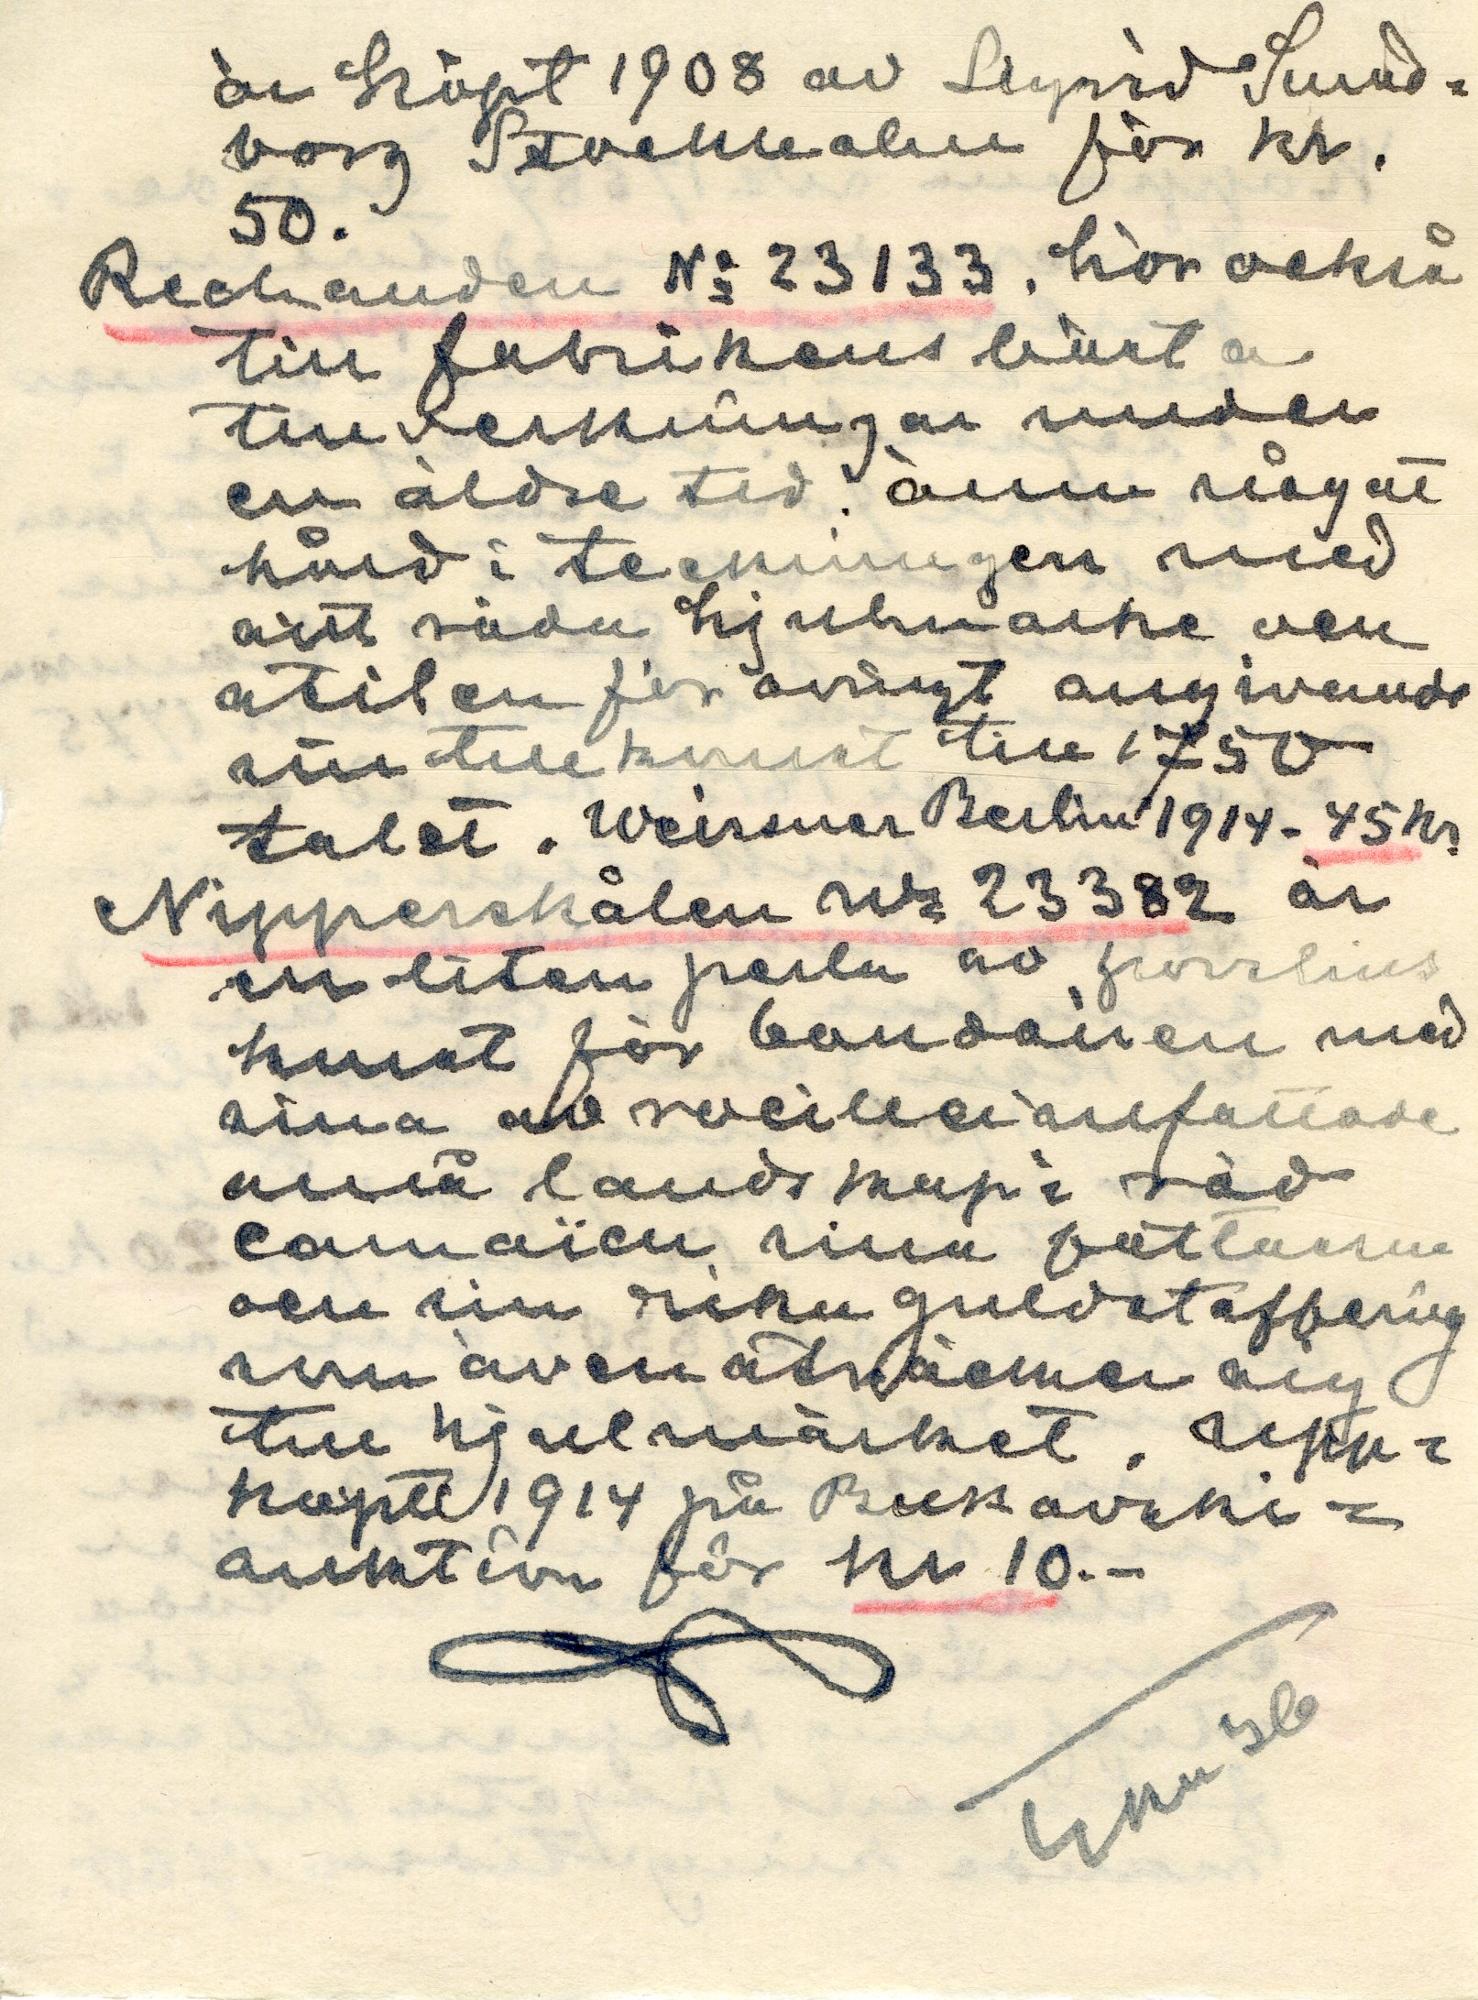 är köpt 1908 av Sigrid Sund=
borg Stockholm för kr.
50.
Rechauden No 23133. hör också
till fabrikens bästa
tillverkningar under
en äldre tid. ännu något
hård i teckningen med
sitt röda hjulmärke och
stilen för övrigt angivande
sin tillkomst till 1750
talet. Weissner Berlin 1914 - 45 kr.
Nipperskålen No 23382 är
en liten perla av porslins
konst för boudoiren med
sina av rocailleinfattade
små landskap i röd
camaïeu, sina puttarne
och sin rika guldstaffering
som även sträcker sig
till hjulmärket. Upp=
köpt 1914 på Bukowski=
auktion för kr 10.-